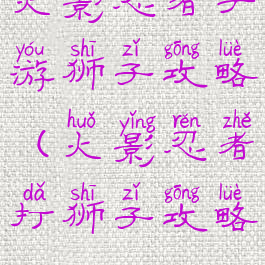 火影忍者手
yóu shī zǐ gōng lüè
游狮子攻略
huǒ yǐng rěn zhě
（火影忍者
dǎ shī zǐ gōng lüè
打狮子攻略